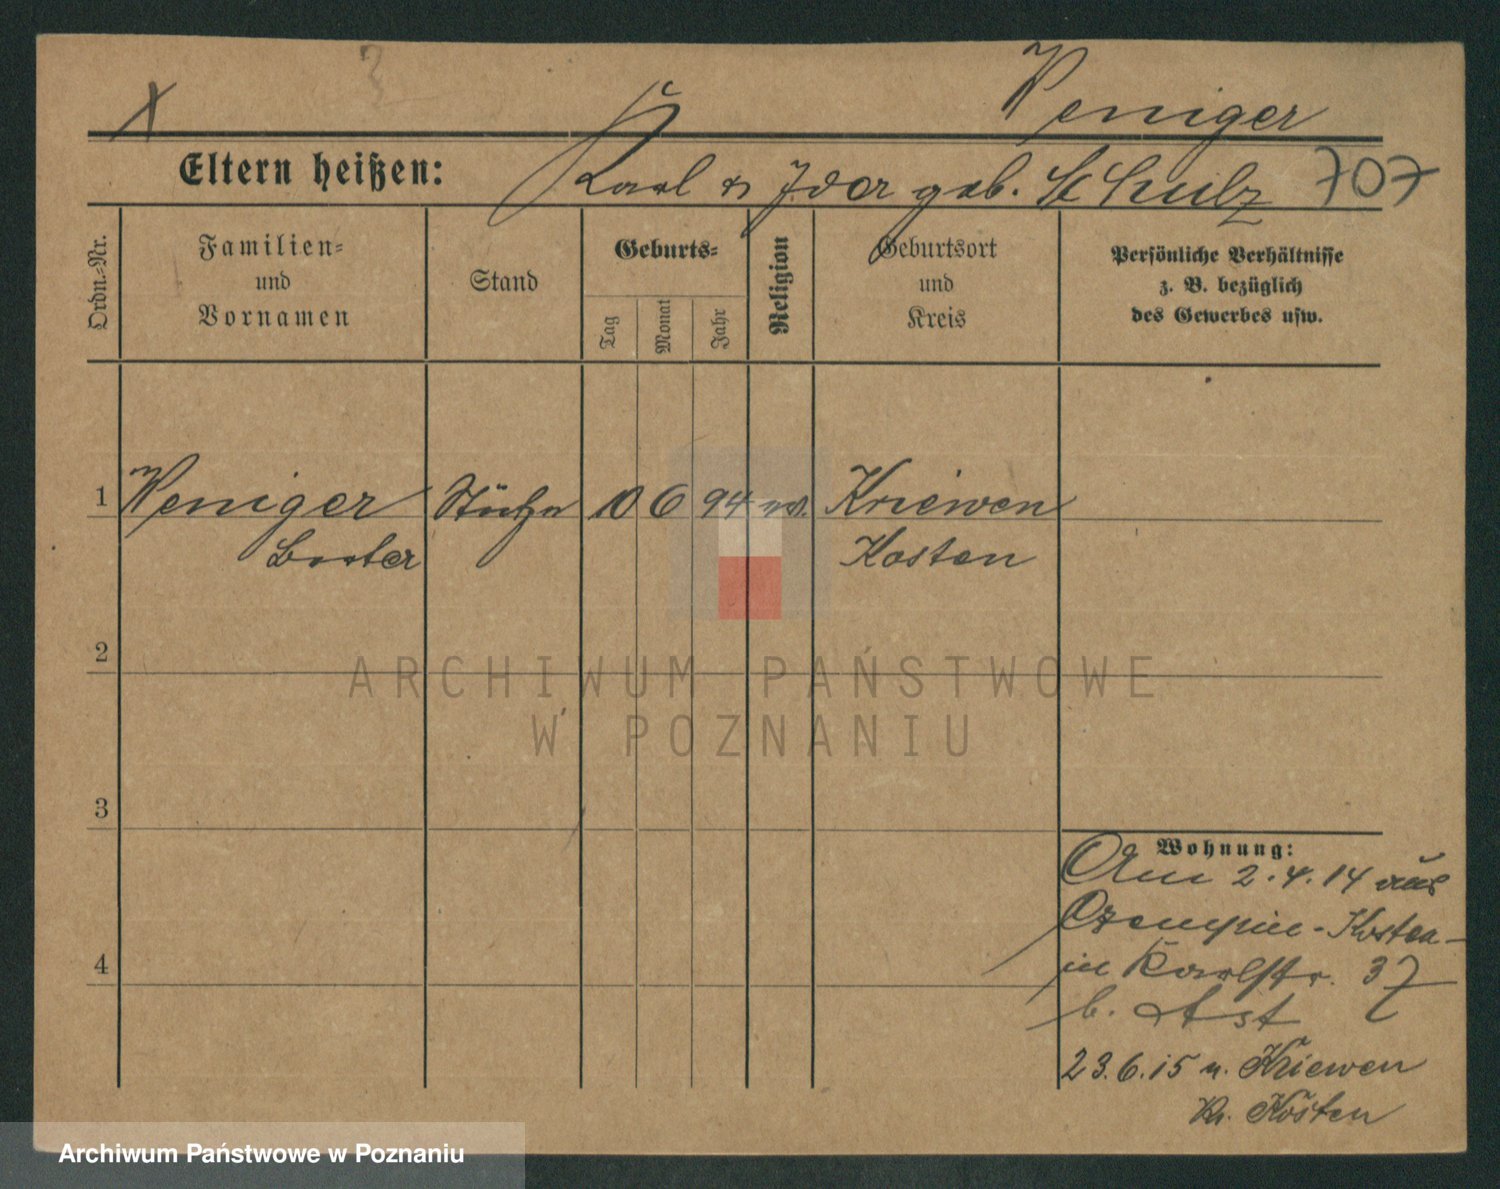 X
Weniger
Eltern heißen: Karl u Ida geb. Schulz 707
Ordn.-Nr.
Familien-
und
Vornamen
Stand
Geburts-
Tag
Monat
Jahr
Religion
Geburtsort
und
Kreis
Persönliche Verhältnisse
z. B. bezüglich
des Gewerbes usw.
1 Weniger Stütze 10 6 94 ev. Kriewen
Kosten
2
3
4
Wohnung:
Am 2.4.14 aus
Czempin-Kosten
in Karlstr. 37
b.
23.6.15 n. Kriewen
Kr. Kosten
ARCHIWUM PAŃSTWOWE
W POZNANIU
Archiwum Państwowe w Poznaniu